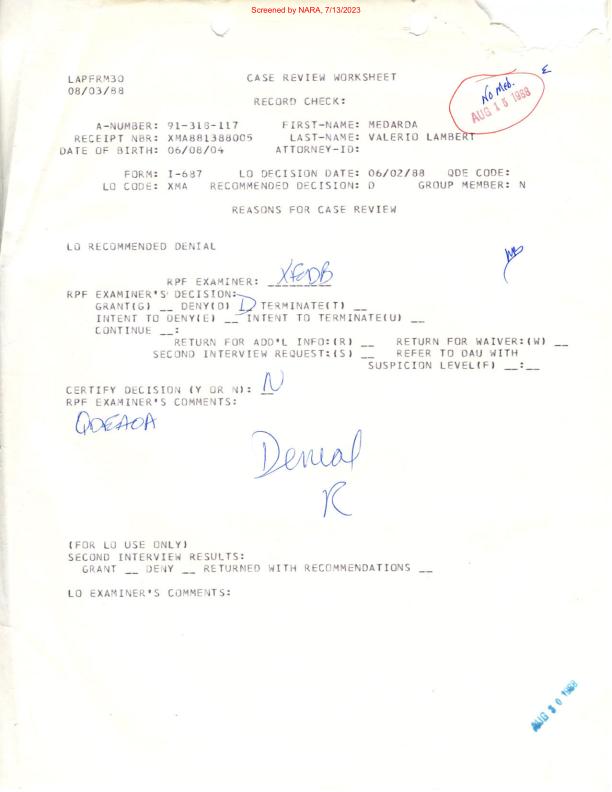 Screened by NARA, 7/13/2023
LAPFRM30 CASE REVIEW WORKSHEET
08/03/88
RECORD CHECK:
No Med.
AUG 15 1988
A-NUMBER: 91-318-117 FIRST-NAME: MEDARDA
RECEIPT NBR: XMA881388005 LAST-NAME: VALERIO LAMBERT
DATE OF BIRTH: 06/08/04 ATTORNEY-ID:
FORM: I-687 LO DECISION DATE: 06/02/88 QDE CODE:
LO CODE: XMA RECOMMENDED DECISION: D GROUP MEMBER: N
REASONS FOR CASE REVIEW
LO RECOMMENDED DENIAL
RPF EXAMINER: XFEDB
RPF EXAMINER'S DECISION:
GRANT(G) __ DENY(D) D TERMINATE(T) __
INTENT TO DENY(E) __ INTENT TO TERMINATE(U) __
CONTINUE __:
RETURN FOR ADD'L INFO:(R) __ RETURN FOR WAIVER:(W) __
SECOND INTERVIEW REQUEST:(S) __ REFER TO DAU WITH
SUSPICION LEVEL(F) __:__
CERTIFY DECISION (Y OR N): N
RPF EXAMINER'S COMMENTS:
QDEAOA
Denial
R
(FOR LO USE ONLY)
SECOND INTERVIEW RESULTS:
GRANT __ DENY __ RETURNED WITH RECOMMENDATIONS __
LO EXAMINER'S COMMENTS:
AUG 30 1988